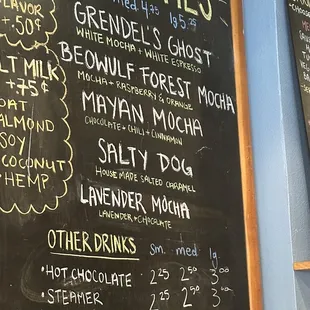 FLAVOR
+.50¢
med 4.75 lg 5.25
GRENDEL'S GHOST
WHITE MOCHA + WHITE ESPRESSO
BEOWULF FOREST MOCHA
MOCHA + RASPBERRY & ORANGE
MAYAN MOCHA
CHOCOLATE + CHILI + CINNAMON
SALTY DOG
HOUSE MADE SALTED CARAMEL
LAVENDER MOCHA
LAVENDER + CHOCOLATE
LT MILK
+.75¢
OAT
ALMOND
SOY
COCONUT
HEMP
OTHER DRINKS sm. med lg.
•HOT CHOCOLATE 2.25 2.50 3.00
•STEAMER 2.25 2.50